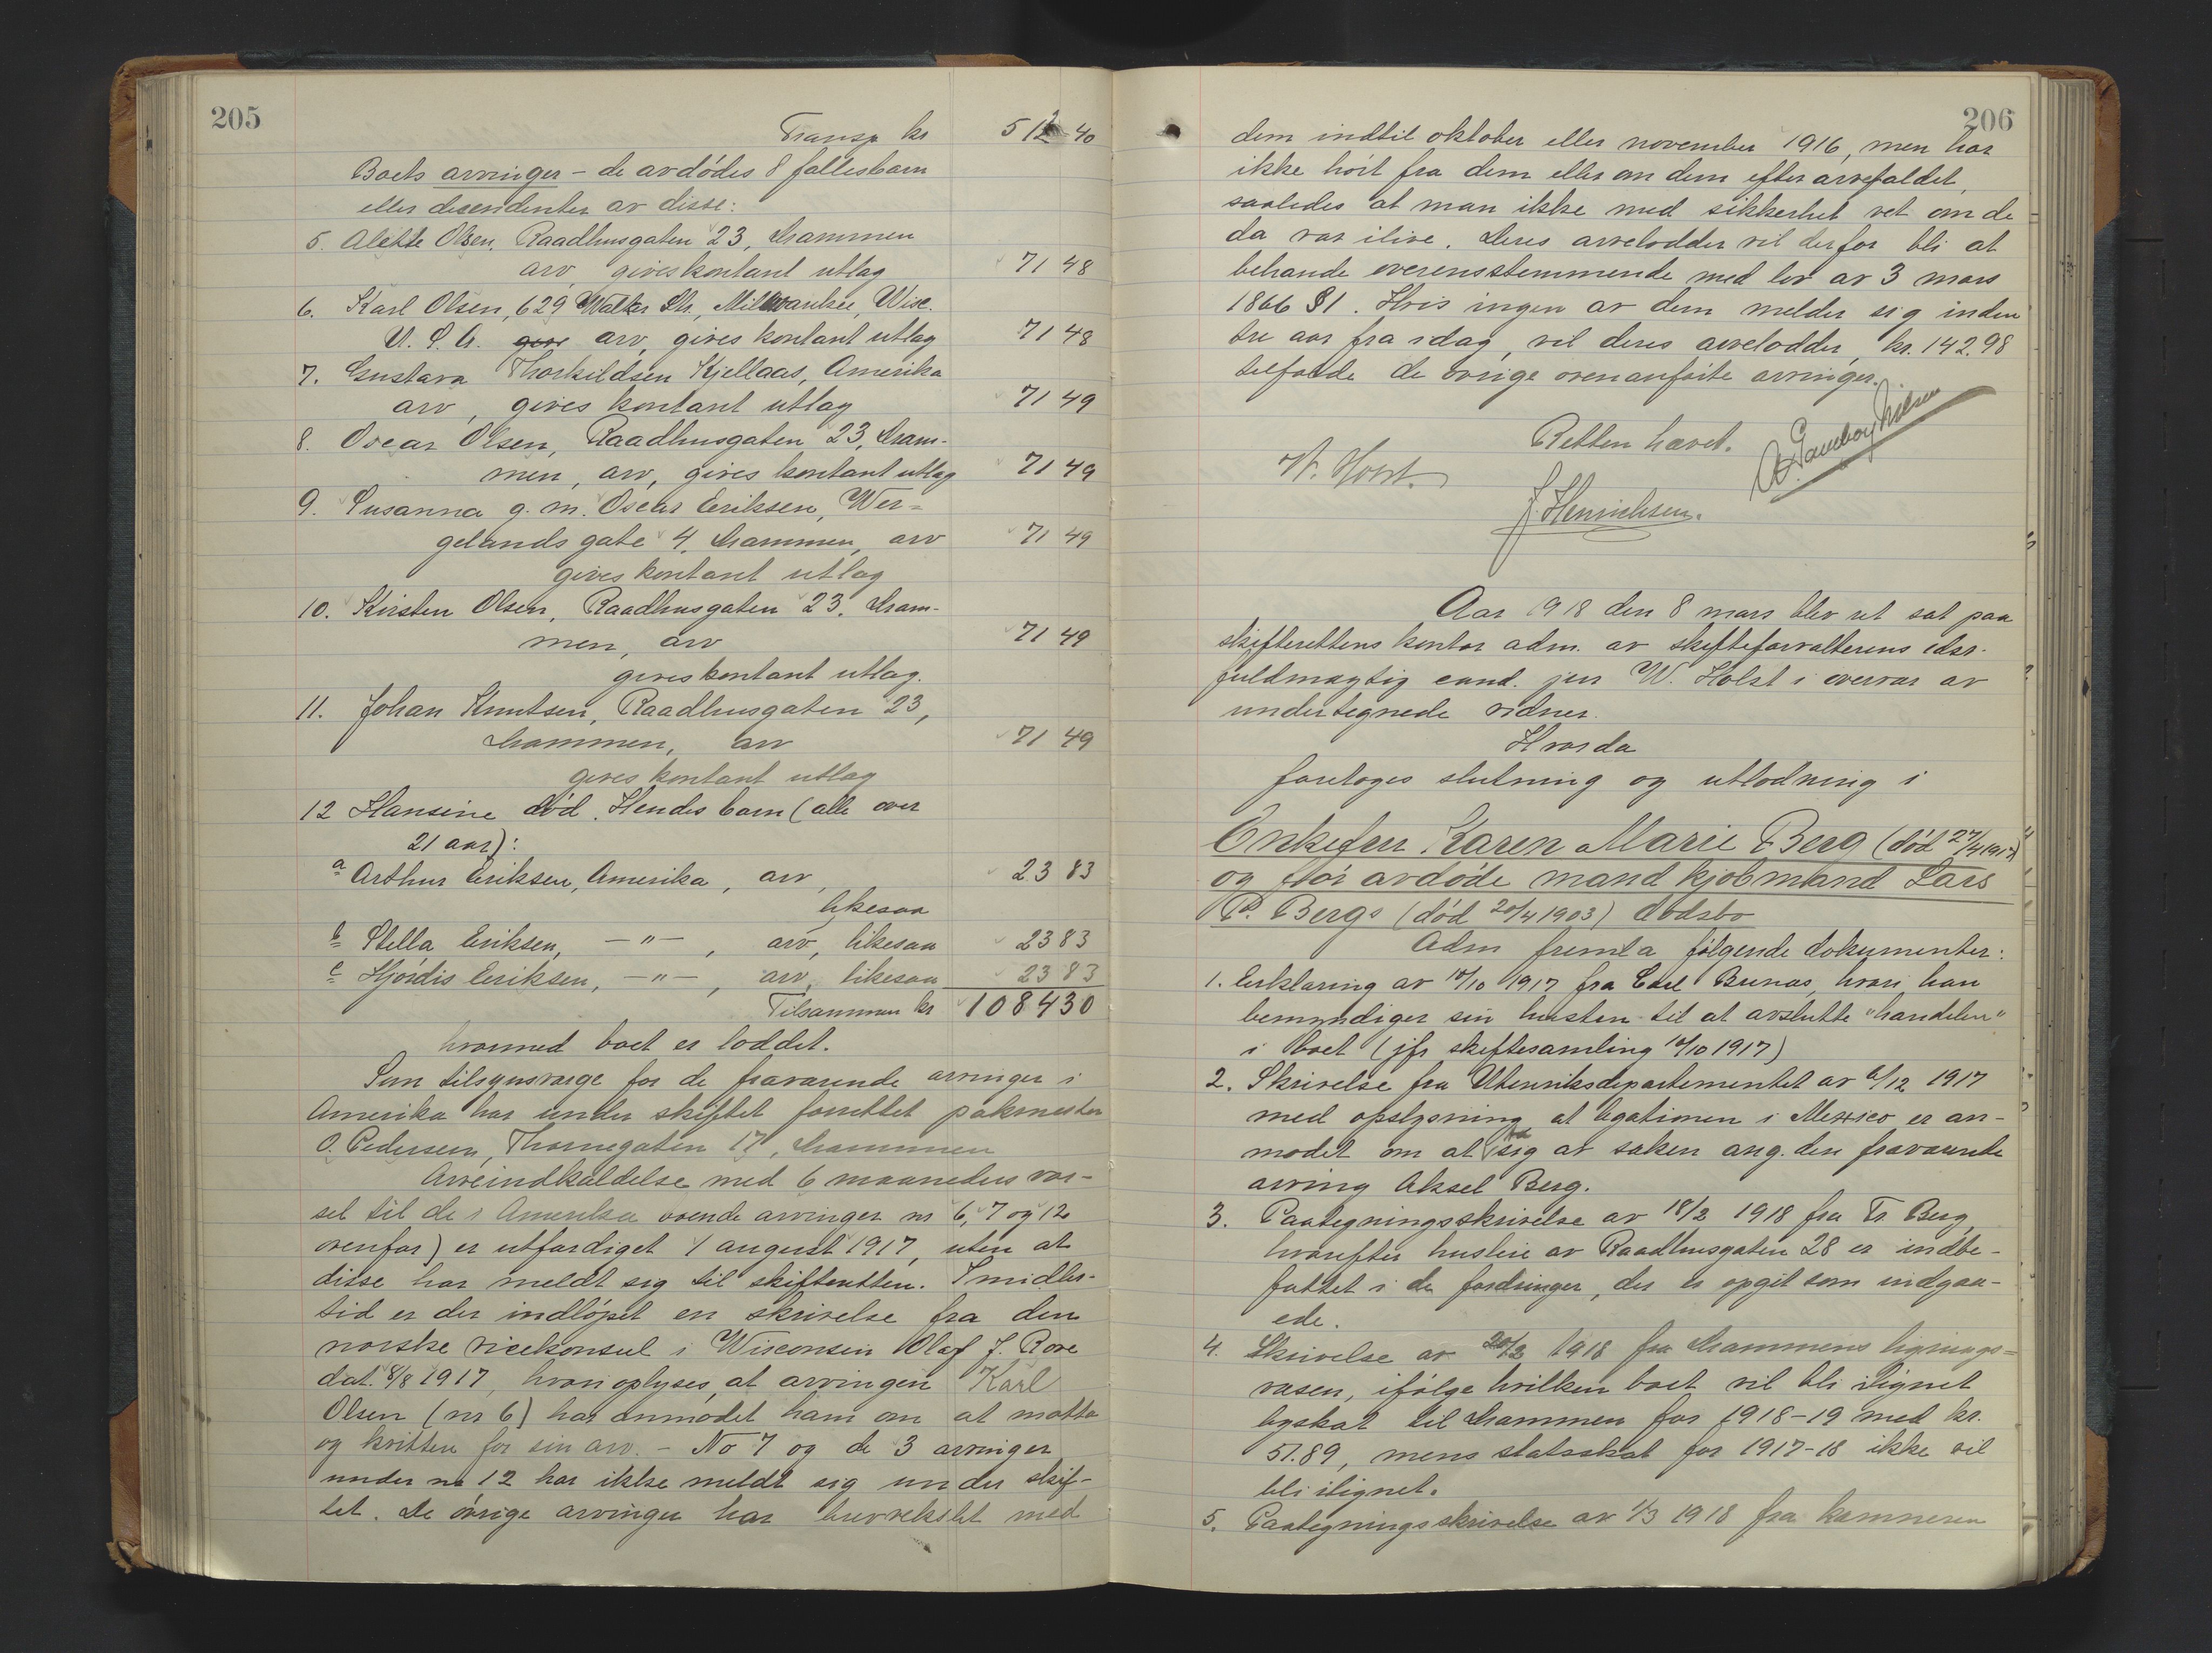 205
Transp kr 512 40
Boets arvinger - de avdödes 8 fællesbarn
eller decendenter av disse:
5. Alette Olsen, Raadhusgaten 23, Drammen
arv, gives kontant utlag 71 48
6. Karl Olsen, 629 Walker Str., Milwaukee, Wisc.
U. S. A. give arv, gives kontant utlag 71 48
7. Gustava Thorkildsen Kjellaas, Amerika
arv, gives kontant utlag 71 49
8. Oscar Olsen, Raadhusgaten 23, Dram-
men, arv, gives kontant utlag 71 49
9. Susanna g. m. Oscar Eriksen, Wer-
gelands gate 4, Drammen, arv 71 49
gives kontant utlag
10. Kirsten Olsen, Raadhusgaten 23, Dram-
men, arv 71 49
gives kontant utlag.
11. Johan Knutsen, Raadhusgaten 23,
Drammen, arv 71 49
gives kontant utlag
12 Hansine död. Hendes barn (alle over
21 aar):
a Arthur Eriksen, Amerika, arv, 23 83
likesaa
b Stella Eriksen, -"-, arv, likesaa 23 83
c Hjördis Eriksen, -"-, arv, likesaa 23 83
Tilsammen kr 1084 30
hvormed boet er loddet.
Som tilsynsverge for de fraværende arvinger i
Amerika har under skiftet forrettet pakmester
O. Pedersen, Thornegaten 17, Drammen
Arveindkaldelse med 6 maaneders var-
sel til de i Amerika boende arvinger nr 6, 7 og 12
ovenfor) er utfærdiget 1 august 1917, uten at
disse har meldt sig til skifteretten. Imidler-
tid er der indlöpet en skrivelse fra den
norske vicekonsul i Wisconsin Olaf J. Rove
dat. 8/8 1917, hvori oplyses, at arvingen Karl
Olsen (nr 6) har anmodet ham om at motta
og kvittere for sin arv. - No 7 og de 3 arvinger
under no 12 har ikke meldt sig under skif-
tet. De övrige arvinger har brevvekslet med
206
dem indtil oktober eller november 1916, men har
ikke hört fra dem eller om dem efter arvefaldet,
saaledes at man ikke med sikkerhet vet om de
da var ilive. Deres arvelodder vil derfor bli at
behandle overensstemmende med lov av 3 mars
1866 §1. Hvis ingen av dem melder sig inden
tre aar fra idag, vil deres arvelodder, kr. 142.98
tilfalde de övrige ovenanförte arvinger.
Retten hævet.
W. Holst.
J. Henrichsen.
Aar 1918 den 8 mars blev ret sat paa
skifterettens kontor adm. av skifteforvalterens edsv.
fuldmægtig cand. jur W. Holst i overvær av
undertegnede vidner.
Hvorda
foretoges slutning og utlodning i
Enkefru Karen Marie Berg (död 27/4 1917)
og för avdöde mand kjöbmand Lars
P. Bergs (död 20/4 1903) dödsbo
Adm fremla fölgende dokumenter:
1. Erklæring av 10/10 1917 fra Carl Bunæs, hvori han
bemyndiger sin hustru til at avslutte "handelen"
i boet (jfr skiftesamling 10/10 1917)
2. Skrivelse fra Utenriksdepartementet av 6/12 1917
med oplysning at legationen i Mexico er an-
modet om at ta sig av saken ang. den fraværende
arving Aksel Berg.
3. Paategningsskrivelse av 18/2 1918 fra Fr. Berg,
hvorefter husleie av Raadhusgaten 28 er indbe-
fattet i de fordringer, der er opgit som indgaa-
ede.
4. Skrivelse av 20/2 1918 fra Drammens lignings-
væsen, ifölge hvilken boet vil bli ilignet
byskat til Drammen for 1918-19 med kr.
51.89, mens statsskat for 1917-18 ikke vil
bli ilignet.
5. Paategningsskrivelse av 1/3 1918 fra kæmneren